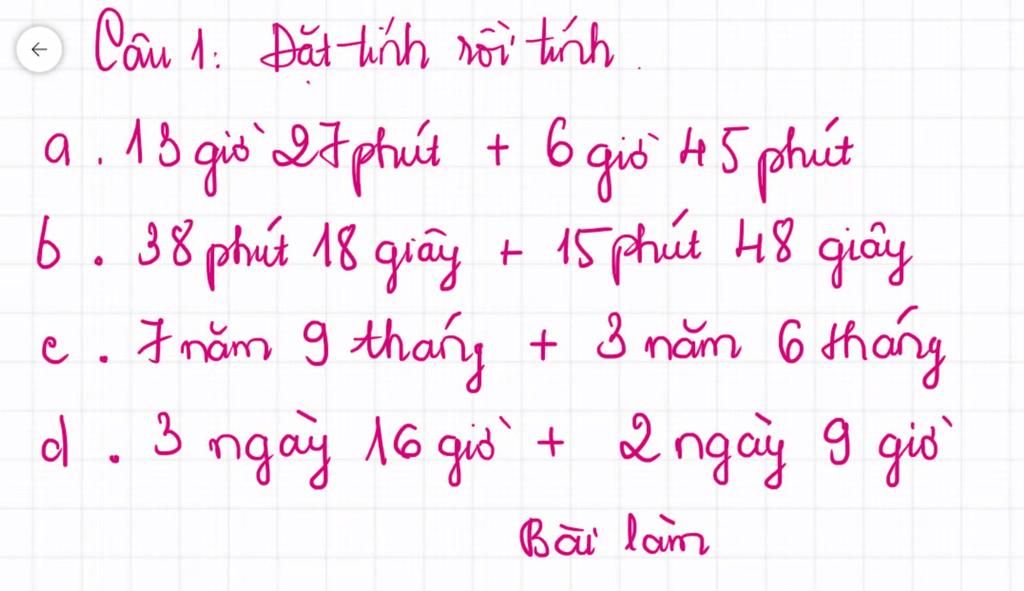 Câu 1: Đặt tính rồi tính.
a. 13 giờ 27 phút + 6 giờ 45 phút
b. 38 phút 18 giây + 15 phút 48 giây
c. 7 năm 9 tháng + 3 năm 6 tháng
d. 3 ngày 16 giờ + 2 ngày 9 giờ
Bài làm